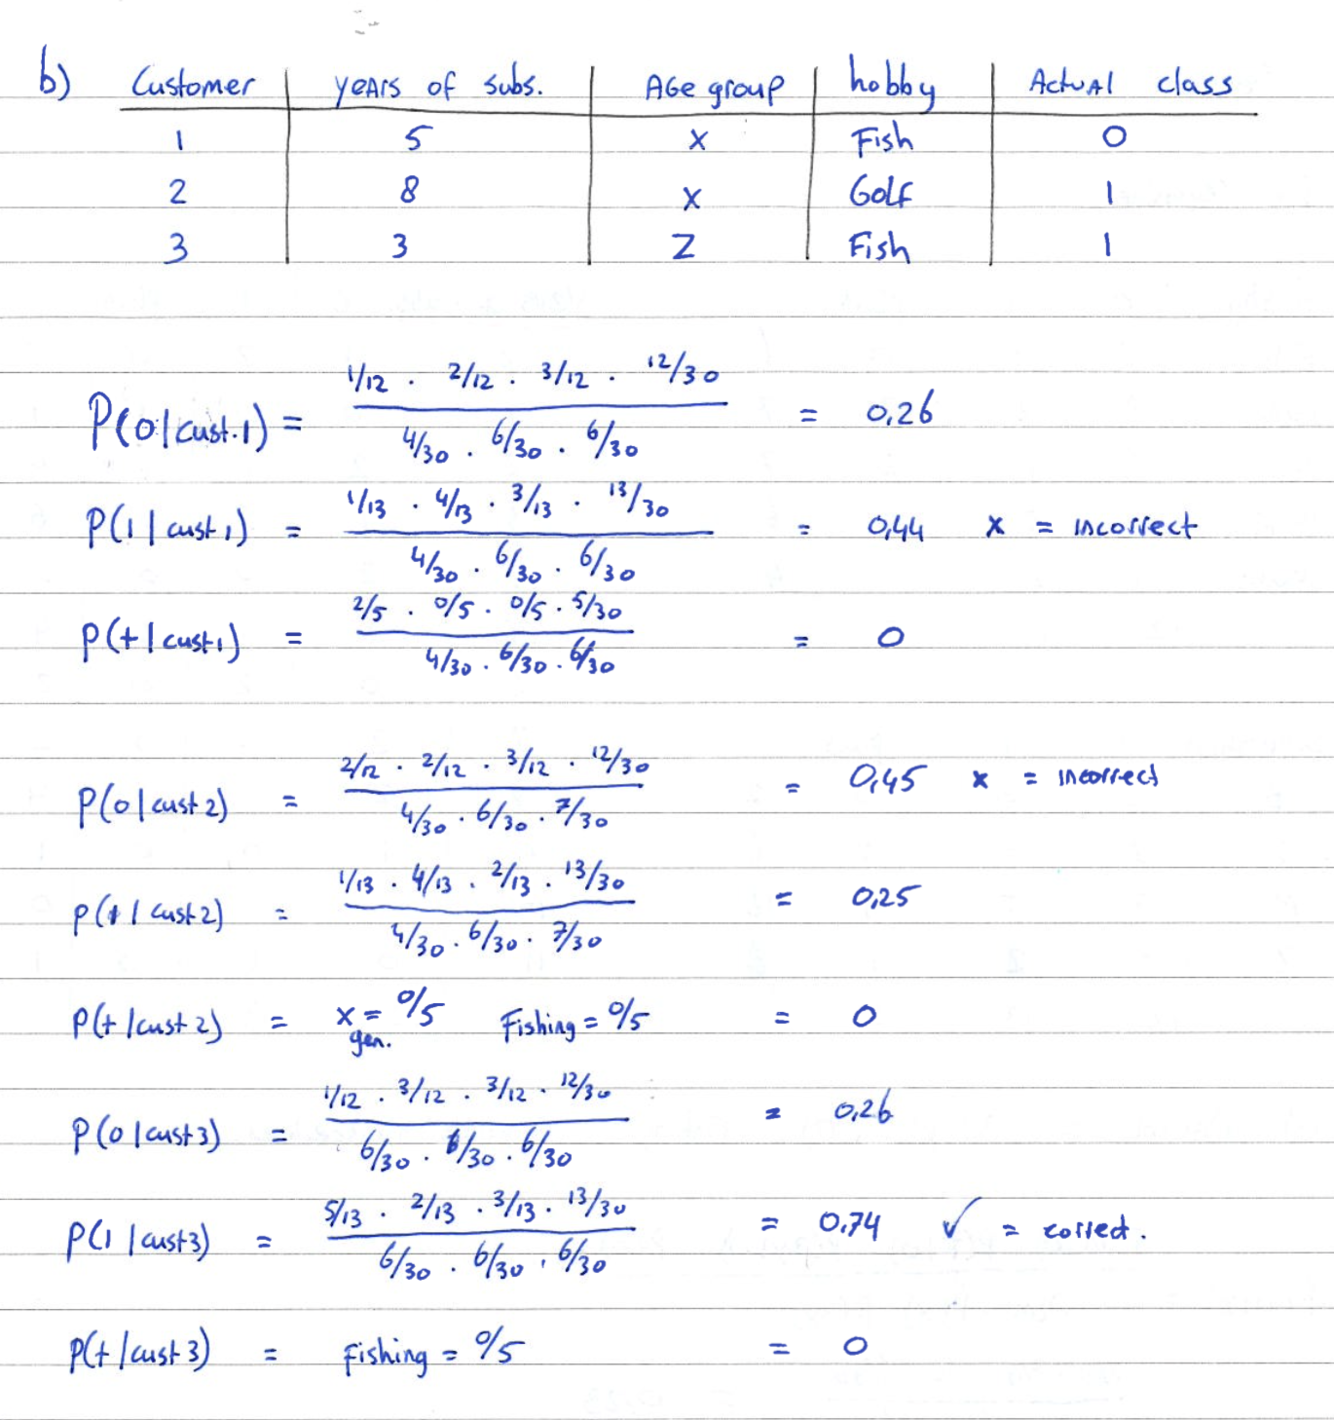 b) Customer years of subs. Age group hobby Actual class
1 5 X Fish 0
2 8 X Golf 1
3 3 Z Fish 1
P(0|cust.1) = 1/12 . 2/12 . 3/12 . 12/30 / 4/30 . 6/30 . 6/30 = 0,26
P(1|cust1) = 1/13 . 4/13 . 3/13 . 13/30 / 4/30 . 6/30 . 6/30 = 0,44 x = incorrect
P(t|cust1) = 2/5 . 0/5 . 0/5 . 5/30 / 4/30 . 6/30 . 6/30 = 0
P(0|cust2) = 2/12 . 2/12 . 3/12 . 12/30 / 4/30 . 6/30 . 7/30 = 0,45 x = incorrect
P(1|cust2) = 1/13 . 4/13 . 2/13 . 13/30 / 4/30 . 6/30 . 7/30 = 0,25
P(t|cust2) = x = 0/5 Fishing = 0/5 = 0
gen.
P(0|cust3) = 1/12 . 3/12 . 3/12 . 12/30 / 6/30 . 6/30 . 6/30 = 0,26
P(1|cust3) = 5/13 . 2/13 . 3/13 . 13/30 / 6/30 . 6/30 . 6/30 = 0,74 ✓ = correct.
P(t|cust3) = Fishing = 0/5 = 0